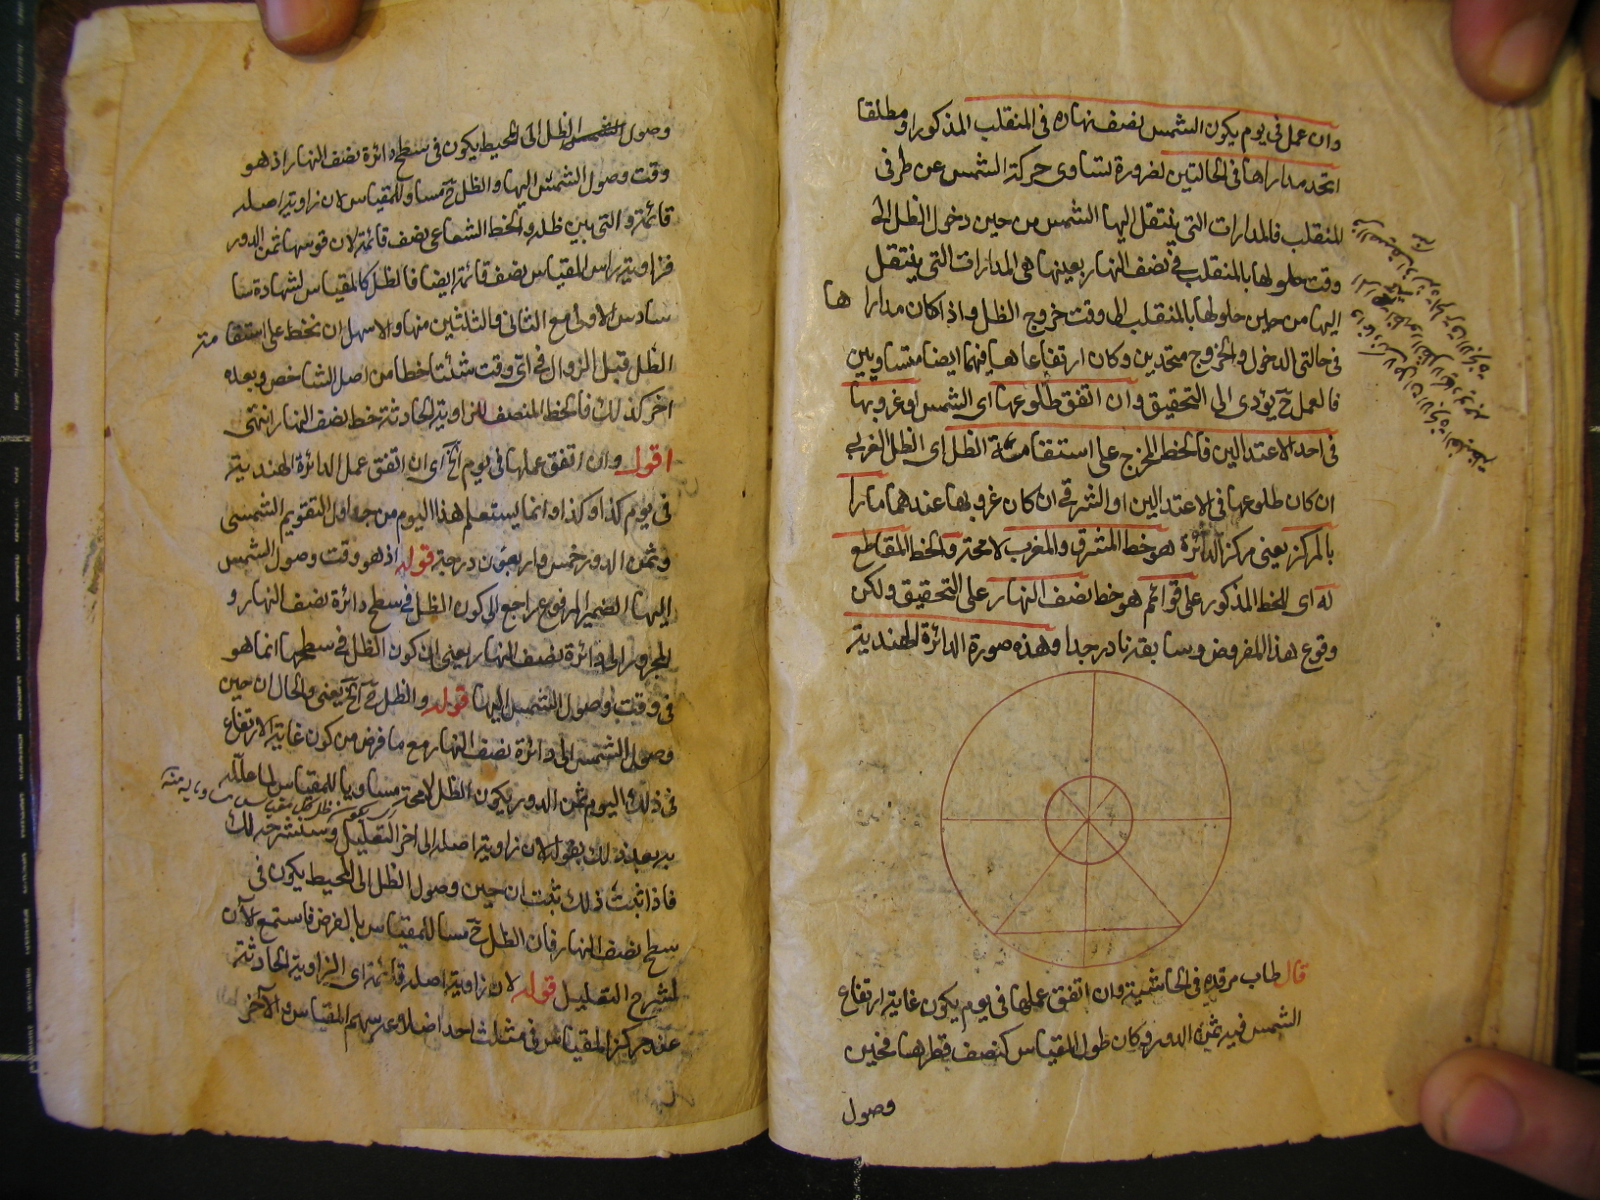 وان عمل في يوم يكون الشمس نصف نهاره في المنقلب المذكور او مطلقا
اتحد مداراها في الحالتين لضرورة تساوى حركة الشمس عن طرفى
المنقلب فالمدارات التى ينتقل اليها الشمس من حين دخول الظل الى
وقت حلولها بالمنقلب في نصف النهار بعينها هى المدارات التى ينتقل
اليها من حين حلولها بالمنقلب الى وقت خروج الظل واذا كان مدارا ها
في حالتى الدخول والخروج متحدين وكان ارتفاعاها فيهما ايضا متساويين
فالعمل ح يؤدى الى التحقيق وان اتفق طلوعها اى الشمس او غروبها
في احد الاعتدالين فالخط المخرج على استقامة الظل اى الظل الغربى
ان كان طلوعها في الاعتدالين او الشرقى ان كان غروبها عندهما مارا
بالمركز يعنى مركز الدائرة هو خط المشرق والمغرب لا محة والخط المقاطع
له اى للخط المذكور على قوائم هو خط نصف النهار على التحقيق ولكن
وقوع هذا المفروض وسابقه نادر جدا وهذه صورة الدائرة الهندية
قال طاب مرقده في الحاشية وان اتفق عملها في يوم يكون غاية ارتفاع
الشمس فيه ثمن الدور وكان طول المقياس كنصف قطرها فحين
وصول
وصول الظل الى المحيط يكون في سطح دائرة نصف النهار اذ هو
وقت وصول الشمس اليها والظل ح مساو للمقياس لان زاوية اصله
قائمة والتى بين ظله والخط الشعاعى نصف قائمة لان قوسها ثمن الدور
فزاوية راس المقياس نصف قائمة ايضا فالظل كالمقياس لشهادة سا
سادس الاولى مع الثانى والثلثين منها والاسهل ان نخط على استقامة
الظل قبل الزوال في اى وقت شئت خطا من اصل الشاخص وبعده
اخر كذلك فالخط المنصف للزاوية الحادثة خط نصف النهار انتهى
اقول وان اتفق عملها في يوم الخ اى ان اتفق عمل الدائرة الهندية
في يوم كذا وكذا وانما يستعلم هذا اليوم من جداول التقويم الشمسى
وثمن الدور خمس واربعون درجة قوله اذ هو وقت وصول الشمس
اليها الضمير المرفوع راجع الى كون الظل في سطح دائرة نصف النهار و
المجرور الى دائرة نصف النهار يعنى ان كون الظل في سطحها انما هو
في وقت وصول الشمس اليها قوله والظل ح الخ يعنى والحال ان حين
وصول الشمس الى دائرة نصف النهار مع ما فرض من كون غاية الارتفاع
في ذلك اليوم ثمن الدور يكون الظل لا محة مساويا للمقياس لما علله
به بعد ذلك بقوله لان زاوية اصله الى اخر التعليل وسنشرحه لك
فاذا ثبت ذلك ثبت ان حين وصول الظل الى المحيط يكون في
سطح نصف النهار فان الظل ح مسا للمقياس بالفرض فاستمع الآن
لشرح التعليل قوله لان زاوية اصله قائمة اى الزاوية الحادثة
عند مركز المقياس في مثلث احد اضلاعه سهم المقياس والآخر